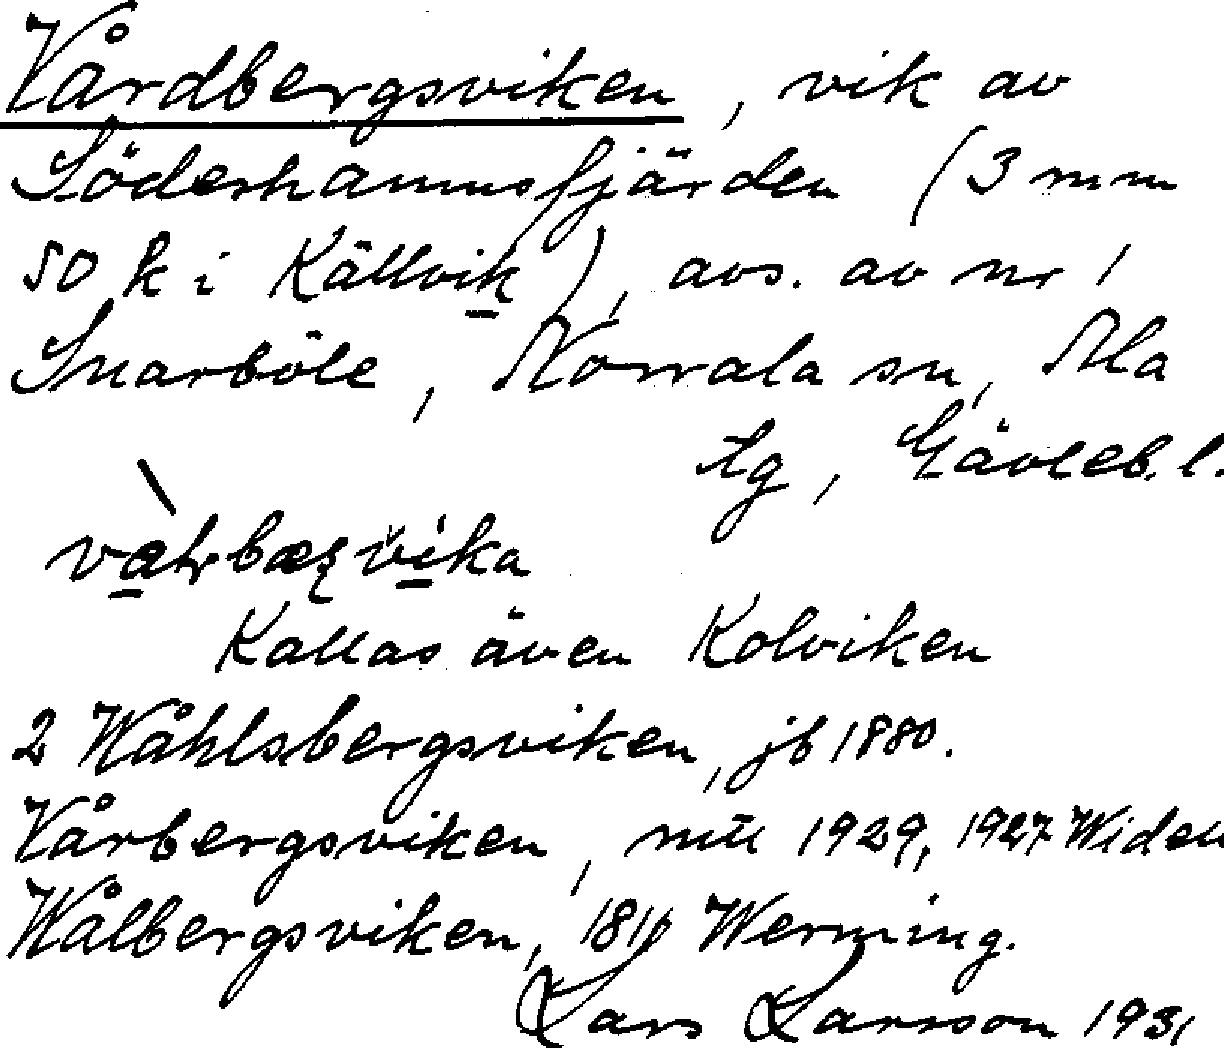 Vårdbergsviken, vik av
Söderhamnsfjärden (3 mm
SO k i Källvik), avs. av nr 1
Snarböle, Norrala sn, Ala
tg, Gävleb. l.
Kallas även Kolviken
2 Wåhlsbergsviken, jb 1880.
Vårbergsviken, mtl 1929, 1927 Widen
Wålbergsviken, Werming.
Lars Larsson 1931